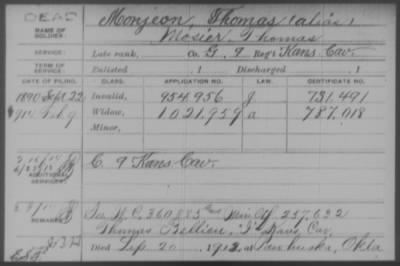 DEAD
NAME OF SOLDIER:
Monjeon, Thomas (alias)
Mosier, Thomas
SERVICE:
Late rank, Co. G. 9 Reg't Kans. Cav.
TERM OF SERVICE:
Enlisted , 1 Discharged , 1
DATE OF FILING. CLASS. APPLICATION NO. LAW. CERTIFICATE NO.
1890 Sept. 22 Invalid, 954,956 J. 731.491
Feb. 9 Widow, 1.021.959 a 787.018
Minor,
ADDITIONAL SERVICES:
C. 9 Kans Cav.
REMARKS:
See W.C. 360.883 Min. Ctf. 257.632
Thomas Bellieu, "I" Kans. Cav.
Died Sep. 20 1912, at Pawhuska, Okla